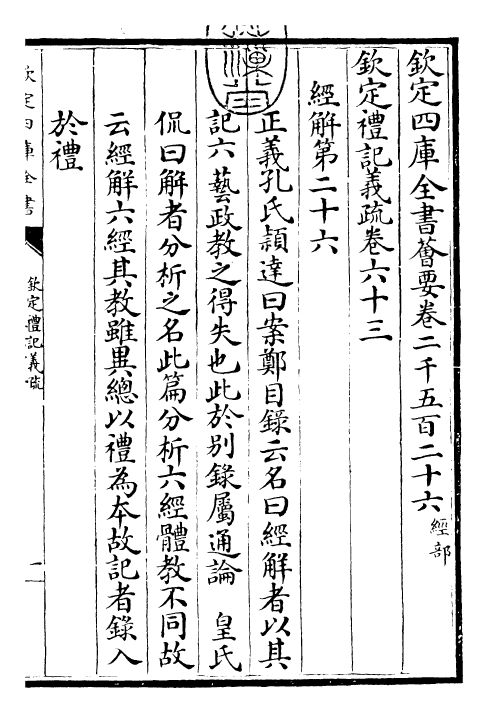 欽定四庫全書薈要卷二千五百二十六經部
欽定禮記義疏卷六十三
經解第二十六
正義孔氏頴達曰案鄭目錄云名曰經解者以其
記六藝政教之得失也此於別錄屬通論　皇氏
侃曰解者分析之名此篇分析六經體教不同故
云經解六經其教雖異總以禮為本故記者錄入
於禮
欽定四庫全書
欽定禮記義疏